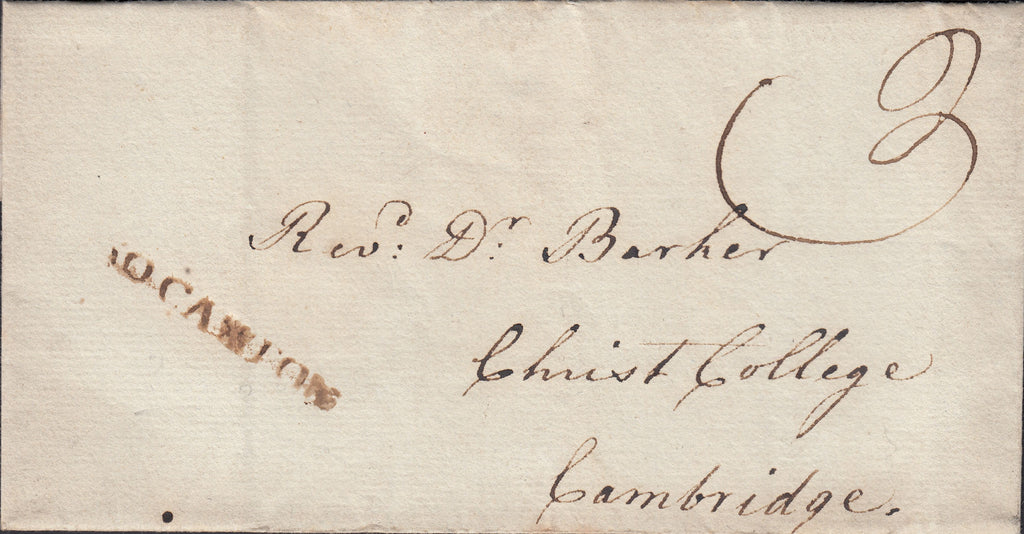 3
Rev.d Dr. Barker
Christ College
Cambridge.